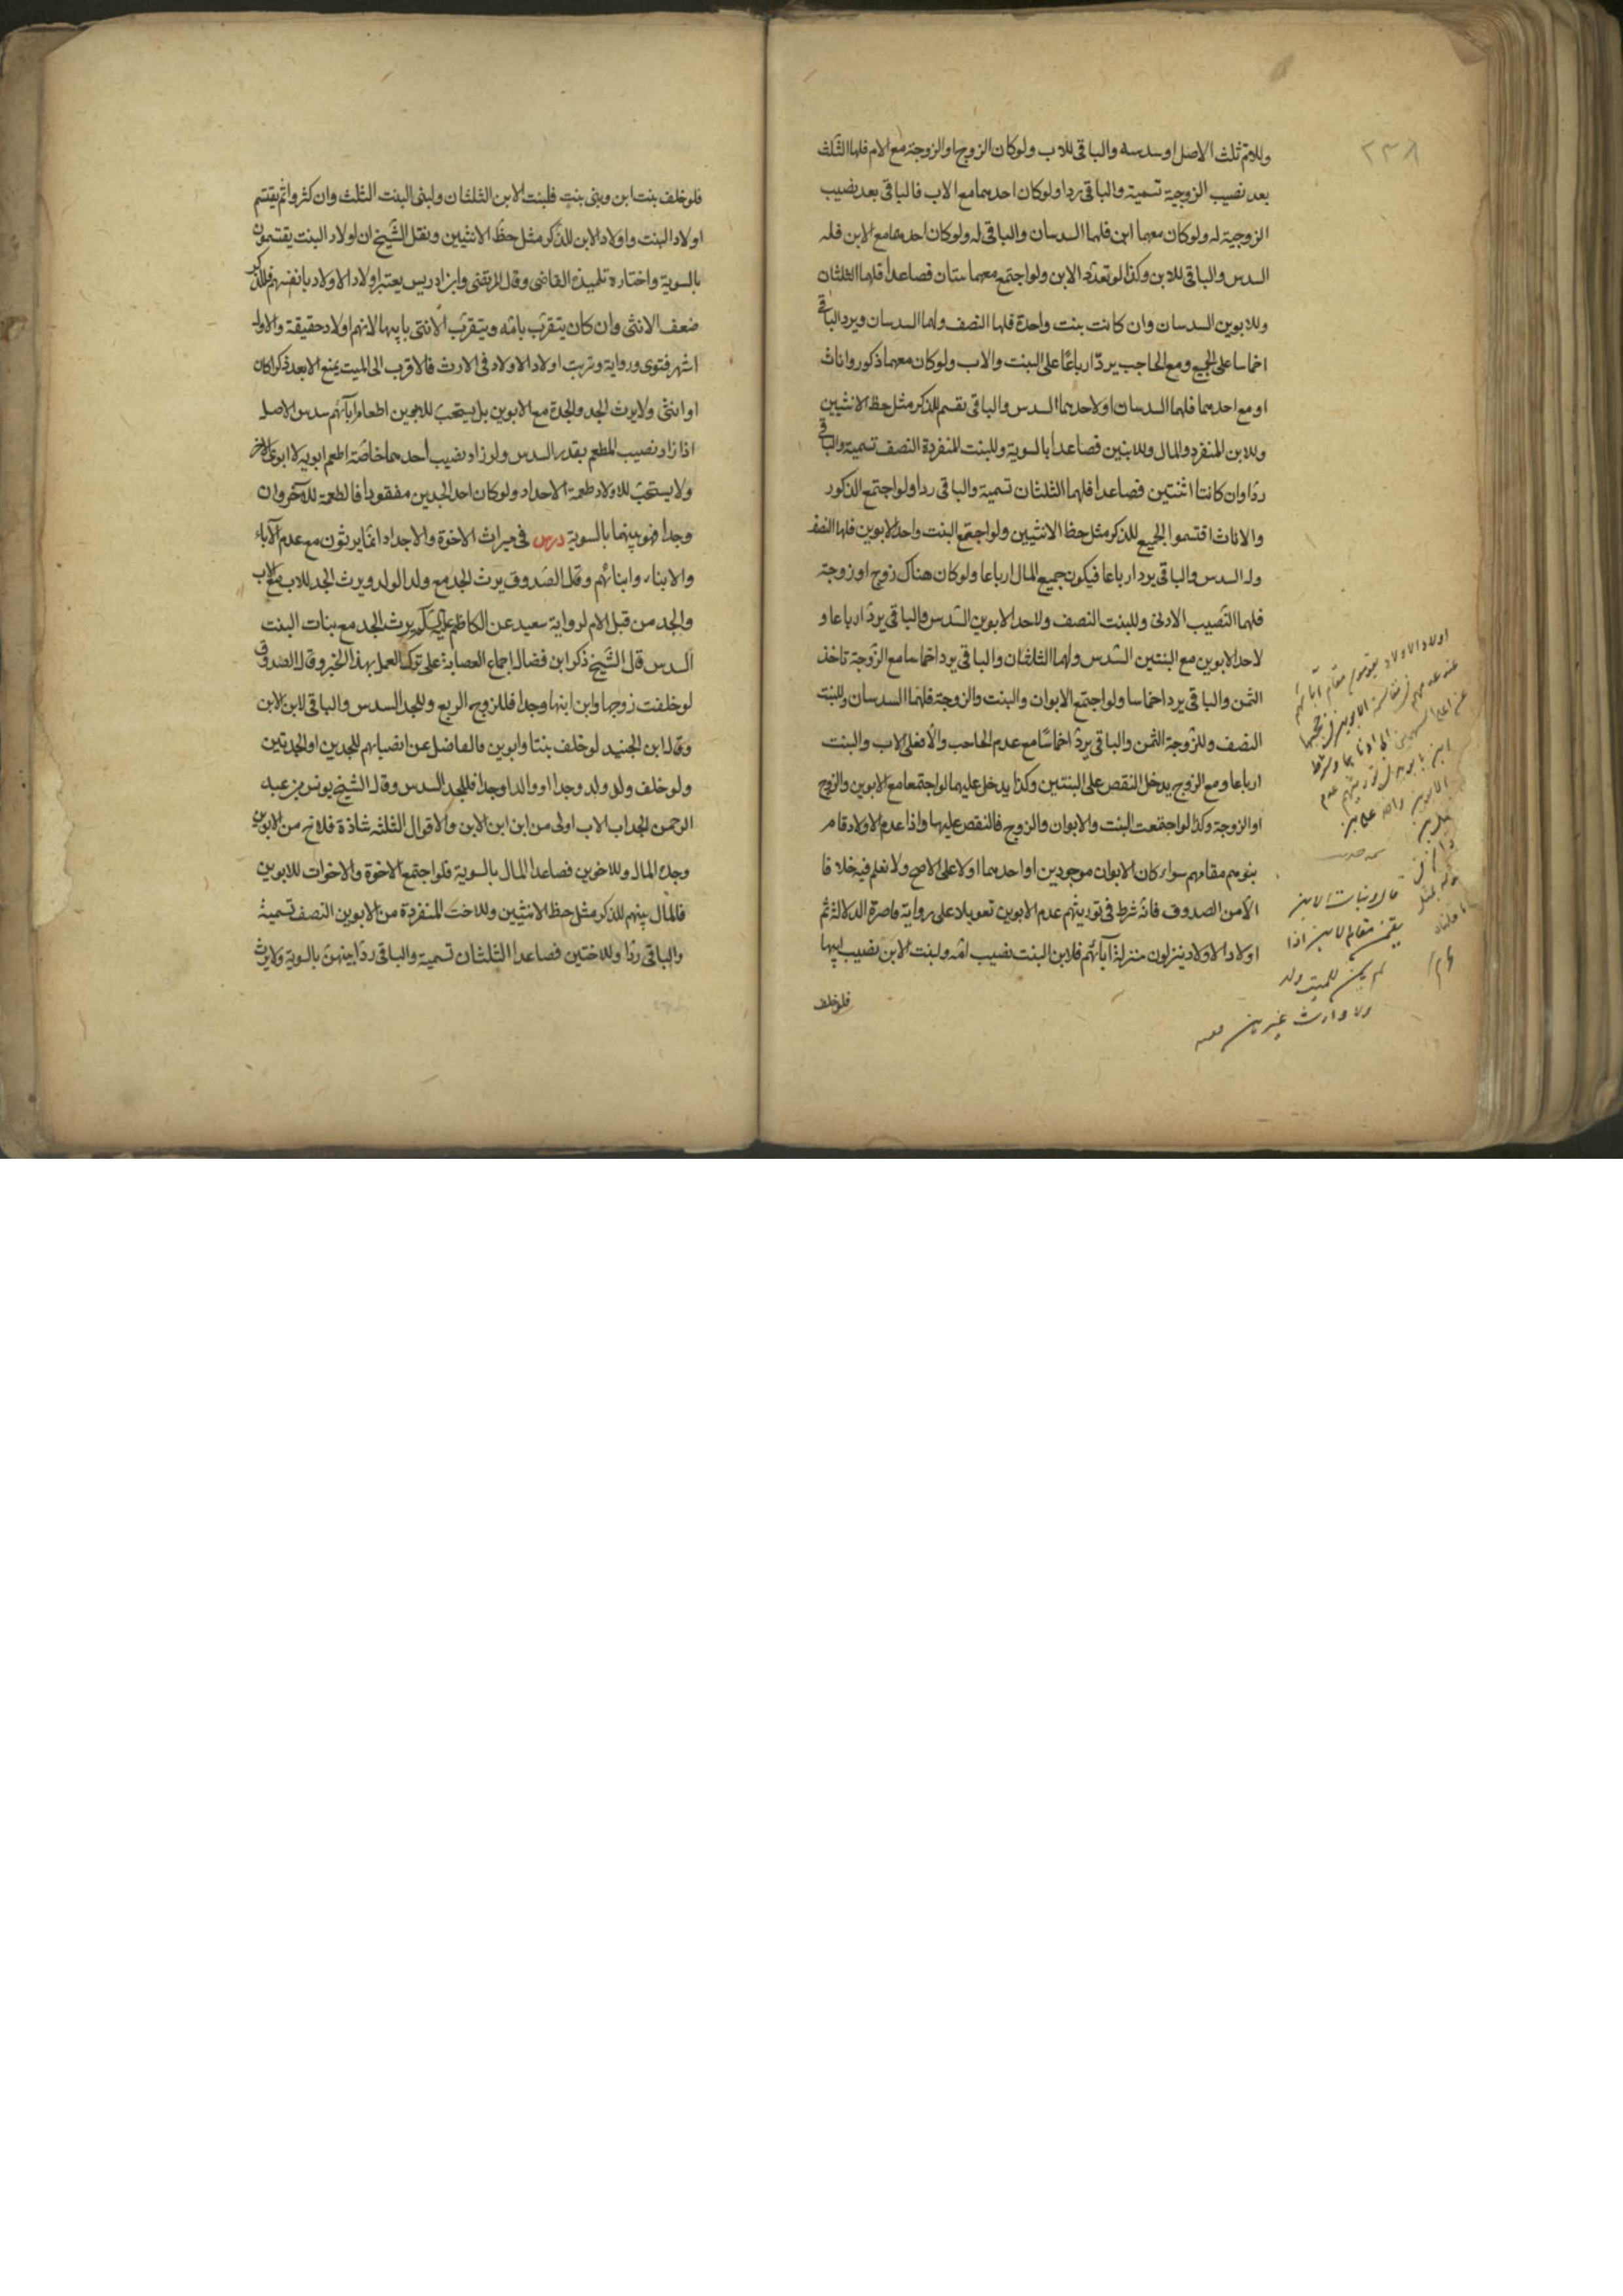 ٢٣٨
وللام ثلث الاصل او سدسه والباقى للاب ولو كان الزوج او الزوجة مع الام فلها الثلث
بعد نصيب الزوجية تسمية والباقى ردا ولو كان احدهما مع الاب فالباقى بعد نصيب
الزوجية له ولو كان معهما ابن فلهما السدسان والباقى له ولو كان احدهما مع الابن فله
السدس والباقى للابن وكذا لو تعدد الابن ولو اجتمع معهما بنتان فصاعدا فلهما الثلثان
وللابوين السدسان وان كانت بنت واحدة فلها النصف ولهما السدسان ويرد الباقى
اخماسا على الجميع ومع الحاجب يردّ ارباعًا على البنت والاب ولو كان معهما ذكور واناث
او مع احدهما فلهما السدسان او لاحدهما السدس والباقى يقسم للذكر مثل حظ الانثيين
وللابن المنفرد المال وللابنين فصاعدا بالسوية وللبنت المنفردة النصف تسمية والباقى
ردّا وان كانتا اثنتين فصاعدا فلهما الثلثان تسمية والباقى ردا ولو اجتمع الذكور
والاناث اقتسموا الجميع للذكر مثل حظ الانثيين ولو اجتمع البنت واحد الابوين فلها النصف
وله السدس والباقى يرد ارباعا فيكون جميع المال ارباعا ولو كان هناك زوج او زوجة
فلهما النّصيب الادنى وللبنت النصف ولاحد الابوين السّدس والباقى يردّ ارباعا و
لاحد الابوين مع البنتين السّدس ولهما الثلثان والباقى يرد اخماسا مع الزّوجة تاخذ
الثمن والباقى يرد اخماسا ولو اجتمع الابوان والبنت والزوجة فلهما السدسان وللبنت
النصف وللزّوجة الثمن والباقى يردّ اخماسًا مع عدم الحاجب والّا فعلى الاب والبنت
ارباعا ومع الزوج يدخل النقص على البنتين وكذا يدخل عليهما لو اجتمعا مع الابوين والزوج
او الزوجة وكذا لو اجتمعت البنت والابوان والزوج فالنقص عليها واذا عدم الاولاد قام
بنوهم مقامهم سواء كان الابوان موجودين او احدهما اولا على الاصح ولا نعلم فيه خلافا
الّا من الصدوف فانّه شرط فى توريثهم عدم الابوين تعويلا على رواية قاصرة الدلالة ثم
اولاد الاولاد ينزلون منزلة آبائهم فلابن البنت نصيب امّه ولبنت الابن نصيب ابيها
فلو خلف
اولاد الاولاد يقومون مقام آبائهم
عند عدمهم فى مقاسمة الابوين
قال وبنات الابن
يقمن مقام الابن اذا
لم يكن للميت ولد
ولا وارث غيرهن
فلو خلف بنت ابن وبنى بنت فلبنت الابن الثلثان ولبنى البنت الثلث وان كثروا ثم يقتسم
اولاد البنت واولاد الابن للذّكر مثل حظّ الانثيين ونقل الشّيخ ان اولاد البنت يقتسمون
بالسوية واختاره تلميذه القاضى وقال المرتضى وابن ادريس يعتبر اولاد الاولاد بانفسهم فللذكر
ضعف الانثى وان كان يتقرّب بامّه ويتقرّب الانثى بابيها لانهم اولاد حقيقة والاول
اشهر فتوى ورواية وترتب اولاد الاولاد فى الارث فالاقرب الى الميت يمنع الابعد ذكرا كان
او انثى ولا يرث الجد والجدة مع الابوين بل يستحبّ للابوين اطعام ابائهم سدس الاصل
اذا زاد نصيب المطعم بقدر السدس ولو زاد نصيب أحدهما خاصّة اطعم ابويه لا ابوى الآخر
ولا يستحبّ للاولاد طعمة الاجداد ولو كان احد الجدين مفقودا فالطعمة للآخر وان
وجدا فهو بينهما بالسوية درس فى ميراث الاخوة والاجداد انّما يرثون مع عدم الآباء
والابناء وابنائهم وقال الصّدوق يرث الجد مع ولد الولد ويرث الجد للاب مع الاب
والجد من قبل الام لرواية سعيد عن الكاظم عليه السلم يرث الجد مع بنات البنت
السدس قال الشّيخ ذكر ابن فضال اجماع العصابة على ترك العمل بهذا الخبر وقال الصدوق
لو خلفت زوجها وابن ابنها وجدا فللزوج الربع وللجد السدس والباقى لابن الابن
وقال ابن الجنيد لو خلف بنتا وابوين فالفاضل عن انصبائهم للجدين او الجدتين
ولو خلف ولد ولد وجدا او والدا وجدا فللجد السدس وقال الشيخ يونس بن عبد
الرحمن الجد اب الاب اولى من ابن ابن الابن والاقوال الثلثه شاذة فللاخ من الابوين
وحده المال وللاخوين فصاعدا المال بالسوية فلو اجتمع الاخوة والاخوات للابوين
فالمال بينهم للذكر مثل حظ الانثيين وللاخت المنفردة من الابوين النصف تسمية
والباقى ردّا وللاختين فصاعدا الثلثان تسمية والباقى ردّا بينهنّ بالسوية ولا يرث